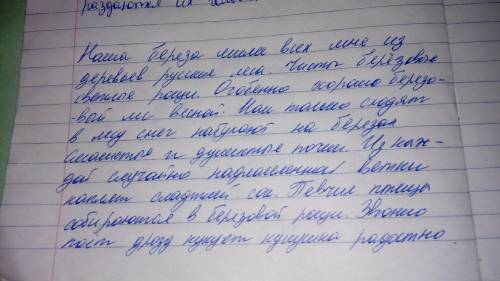 раздаются их
Наша береза милее всех мне из
деревьев русских леса. Чисты берёзовые
светлые рощи. Особенно хорошо березо-
-вый лес весной. Как только сходят
в лесу снег набухают на березах
смолистые и душистые почки. Из каж-
дой случайно надломленной ветки
каплет сладкий сок. Певчие птицы
собираются в березовой рощи. Звонко
поют дрозд кукует кукушка радостно